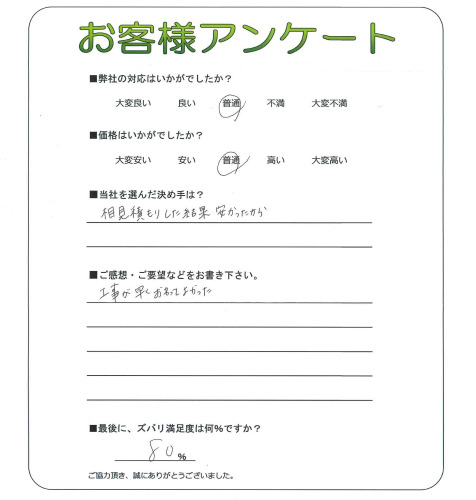 お客様アンケート
■弊社の対応はいかがでしたか？
大変良い 良い 普通 不満 大変不満
■価格はいかがでしたか？
大変安い 安い 普通 高い 大変高い
■当社を選んだ決め手は？
相見積もりした結果安かったから
■ご感想・ご要望などをお書き下さい。
工事が早くおわってよかった
■最後に、ズバリ満足度は何％ですか？
80％
ご協力頂き、誠にありがとうございました。